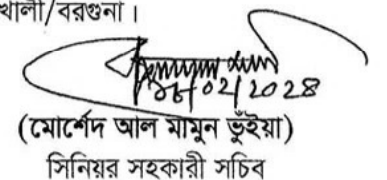 খালী/বরগুনা।
/02/2028
(মোর্শেদ আল মামুন ভুঁইয়া)
সিনিয়র সহকারী সচিব